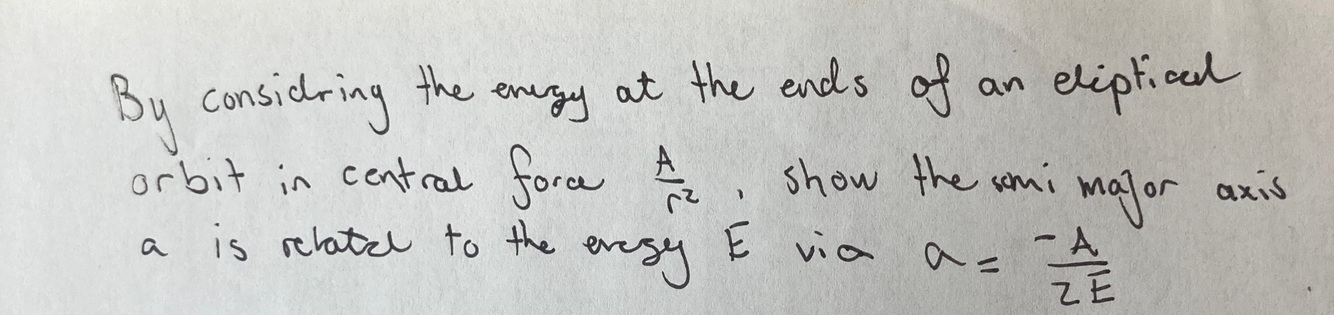 By considring the energy at the ends of an eliptical
orbit in central force $\frac{A}{r^2}$, show the semi major axis
a is related to the energy E via $a = \frac{-A}{2E}$